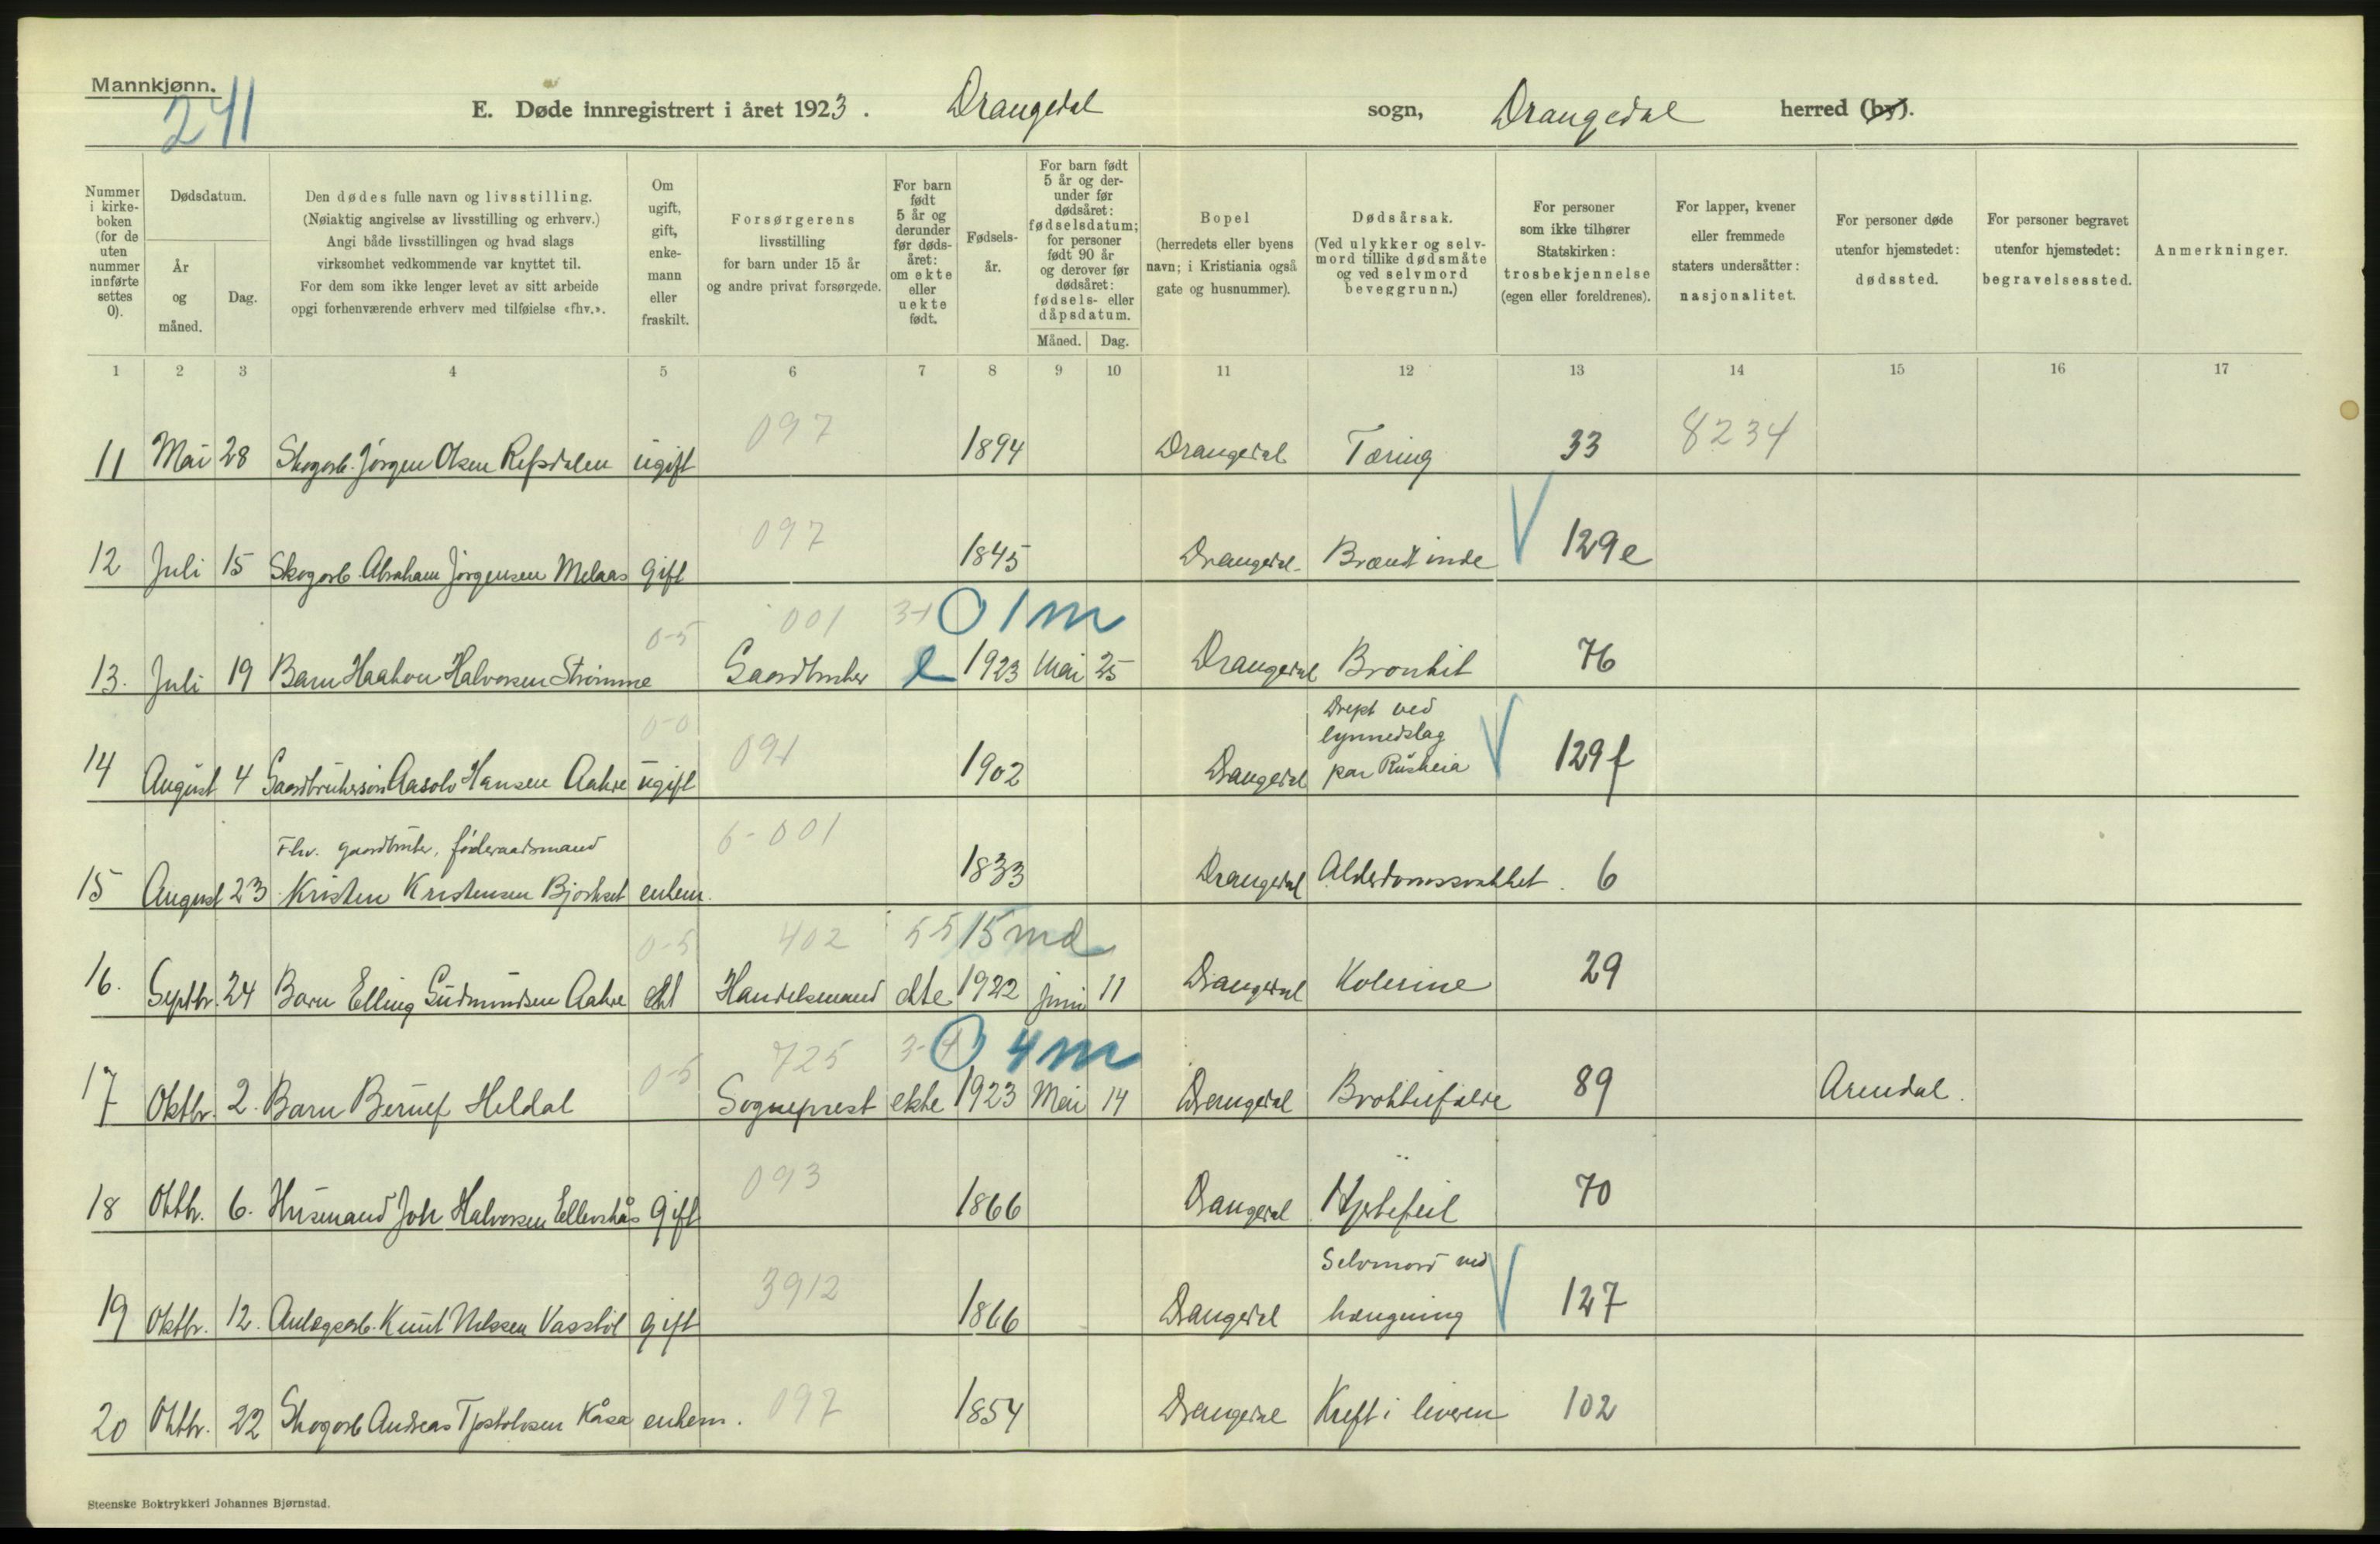 Mannkjønn.
241
E. Døde innregistrert i året 1923. Drangedal sogn, Drangedal herred (by).
Nummer i kirkeboken (for de uten nummer innførte settes 0).
Dødsdatum.
År og måned.
Dag.
Den dødes fulle navn og livsstilling.
(Nøiaktig angivelse av livsstilling og erhverv.)
Angi både livsstillingen og hvad slags
virksomhet vedkommende var knyttet til.
For dem som ikke lenger levet av sitt arbeide
opgi forhenværende erhverv med tilføielse «fhv.».
Om ugift, gift, enkemann eller fraskilt.
Forsørgerens
livsstilling
for barn under 15 år
og andre privat forsørgede.
For barn født 5 år og derunder før dødsåret: om ekte eller uekte født.
Fødselsår.
For barn født 5 år og derunder før dødsåret: fødselsdatum; for personer født 90 år og derover før dødsåret: fødsels- eller dåpsdatum.
Måned. Dag.
Bopel
(herredets eller byens
navn; i Kristiania også
gate og husnummer).
Dødsårsak.
(Ved ulykker og selvmord tillike dødsmåte og ved selvmord beveggrunn.)
For personer
som ikke tilhører
Statskirken:
trosbekjennelse
(egen eller foreldrenes).
For lapper, kvener
eller fremmede
staters undersåtter:
nasjonalitet.
For personer døde
utenfor hjemstedet:
dødssted.
For personer begravet
utenfor hjemstedet:
begravelsessted.
Anmerkninger.
1 2 3 4 5 6 7 8 9 10 11 12 13 14 15 16 17
097 8234
11 Mai 28 Skogarb. Jørgen Olsen Refsdalen ugift 1894 Drangedal Tæring 33
097
12 Juli 15 Skogarb Abraham Jørgensen Melaas gift 1845 Drangedal Brændt inde V 129e
0-5 001 3-1 0 1 m
13. Juli 19 Barn Haakon Halvorsen Strømme Gaardbruker e 1923 Mai 25 Drangedal Bronkit 76
0-0 091 Drept ved
lynnedslag
14 August 4 Gaardbrukersøn Aasolv Hansen Aakre ugift 1902 Drangedal paa Rusheia V 129f
Fhv. gaardbruker, føderaadsmand 6-001
15 August 23 Kristen Kristensen Bjorkset enkem. 1833 Drangedal Alderdomssvakhet. 6
0-5 402 5-5 15 md
16. Septbr. 24 Barn Elling Gudmundsen Aakre ekt Handelsmand ekte 1922 juni 11 Drangedal Kolerine 29
0-5 725 3-4 0 4 m
17 Oktbr. 2. Barn Bernef Heldal Sogneprest ekte 1923 Mai 14 Drangedal 89 Arendal.
093
18 Oktbr. 6. Husmand Joh Halvorsen gift 1866 Drangedal Hjertefeil 70
3912 Selvmord ved
19 Oktbr. 12. Anlægsarb. Knut Nilssen Vasstøl gift 1866 Drangedal hængning V 127
097
20 Oktbr. 22 Skogarb Andreas Tjostolvsen Kåsa enkem. 1854 Drangedal Kreft i leveren 102
Steenske Boktrykkeri Johannes Bjørnstad.